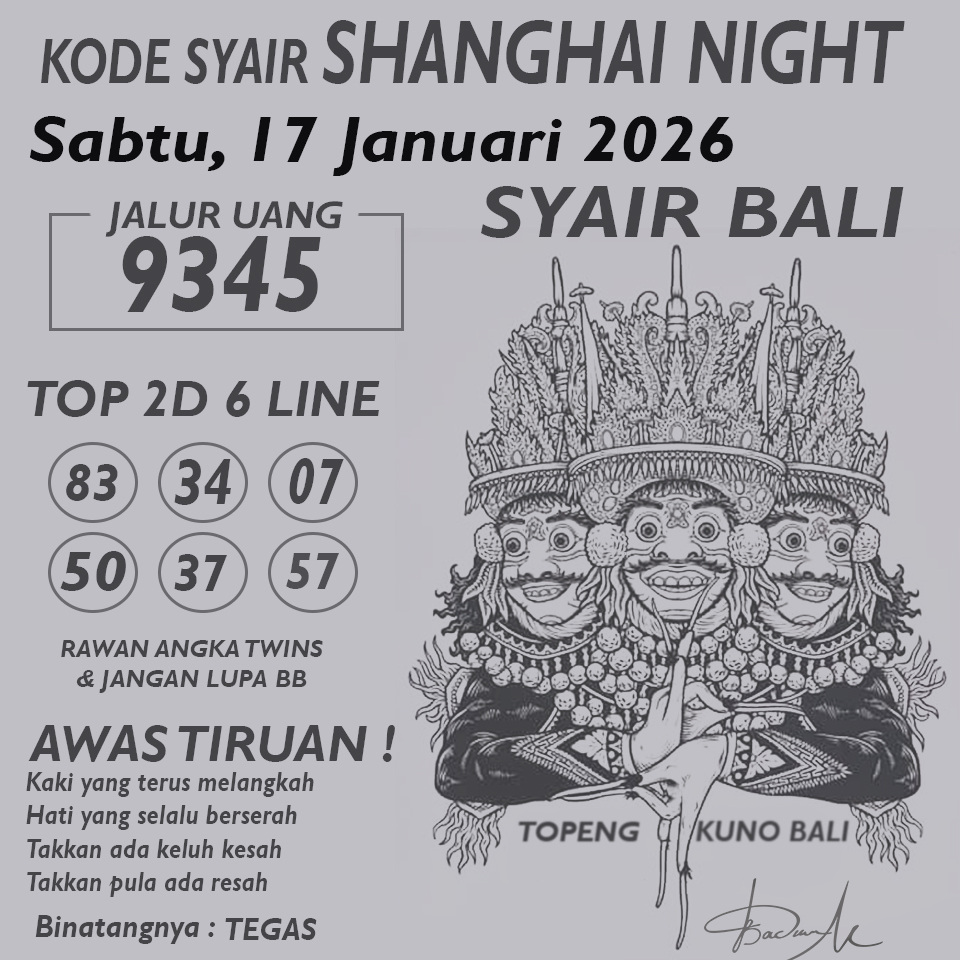 KODE SYAIR SHANGHAI NIGHT
Sabtu, 17 Januari 2026
SYAIR BALI
JALUR UANG
9345
TOP 2D 6 LINE
83 34 07
50 37 57
RAWAN ANGKA TWINS
& JANGAN LUPA BB
AWAS TIRUAN !
Kaki yang terus melangkah
Hati yang selalu berserah
Takkan ada keluh kesah
Takkan pula ada resah
Binatangnya : TEGAS
TOPENG KUNO BALI